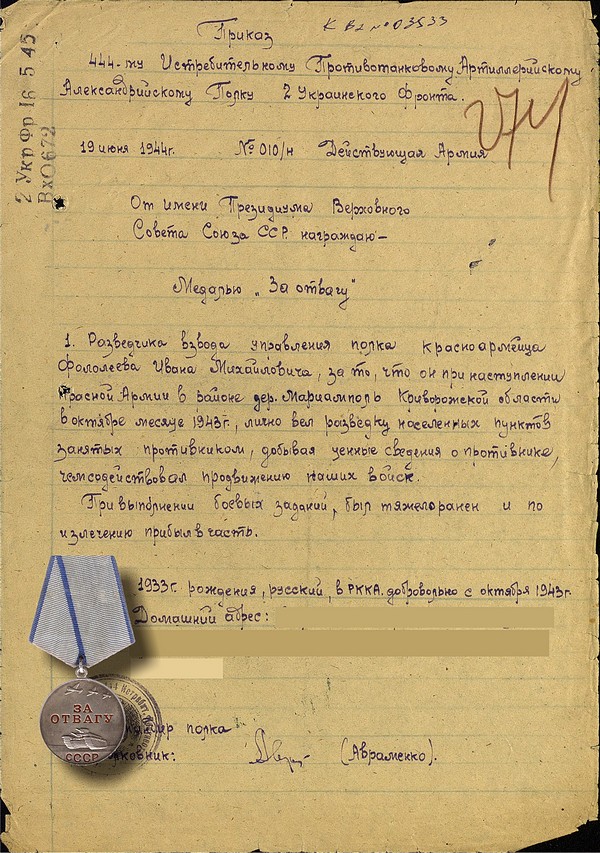 К Вх № 03533
Приказ
444-му Истребительному Противотанковому Артиллерийскому
Александрийскому Полку 2 Украинского Фронта.
2 Укр Фр 16 5 45
Вх 0672
19 июня 1944г. № 010/н Действующая Армия
От имени Президиума Верховного
Совета Союза ССР награждаю –
Медалью „За отвагу"
1. Разведчика взвода управления полка красноармейца
Фололеева Ивана Михайловича, за то, что он при наступлении
Красной Армии в районе дер. Мариамполь Криворожской области
в октябре месяце 1943г, лично вел разведку населенных пунктов
занятых противником, добывая ценные сведения о противнике,
чем содействовал продвижению наших войск.
При выполнении боевых заданий, был тяжело ранен и по
излечению прибыл в часть.
1933г. рождения, русский, в РККА добровольно с октября 1943г.
Домашний адрес:
полка
(Авраменко).
ЗА
ОТВАГУ
СССР